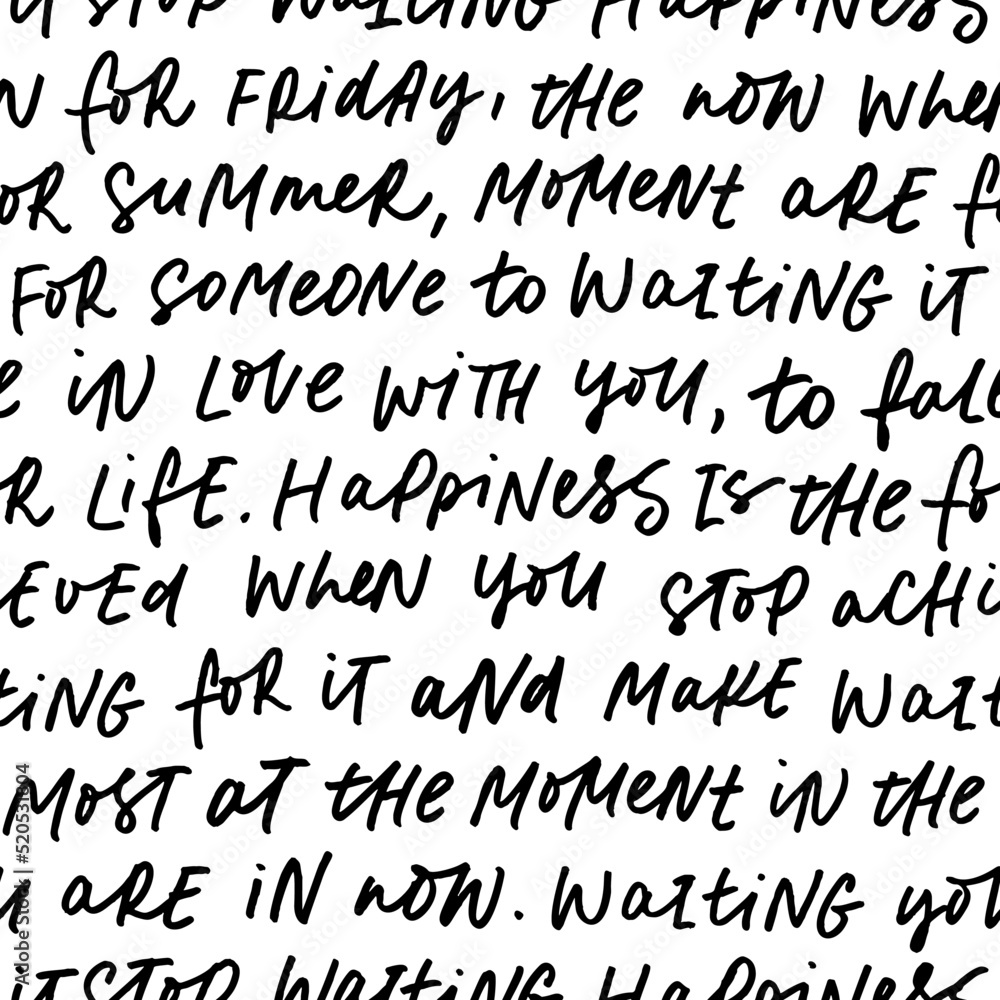 it STOP WAITING HAPPINESS
N FOR FRIDAY, THE NOW WHEN
OR SUMMER, MOMENT ARE FO
FOR SOMEONE TO WAITING IT
E IN LOVE WITH YOU, TO FALL
R LIFE. HAPPINESS IS THE FO
EVED WHEN YOU STOP ACHI
TING FOR IT AND MAKE WAIT
MOST AT THE MOMENT IN THE
U ARE IN NOW. WAITING YOU
IT STOP WAITING HAPPINESS
Adobe Stock | #520531804